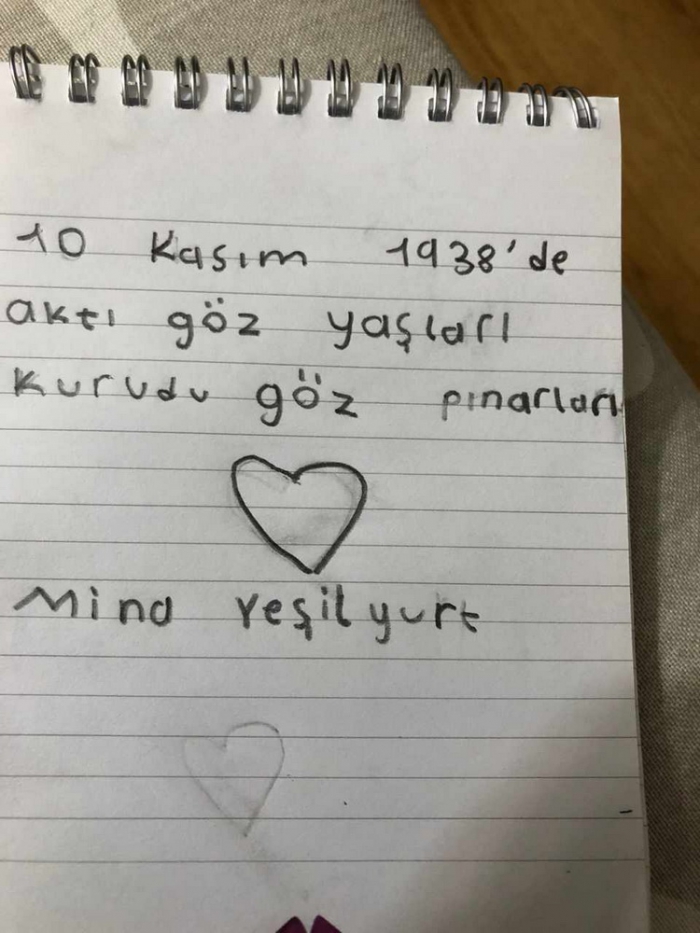 10 Kasım 1938'de
aktı göz yaşları
Kurudu göz pınarları
Mina Yeşilyurt